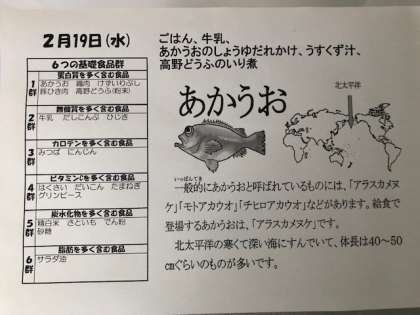 2月19日(水)
ごはん、牛乳、
あかうおのしょうゆだれかけ、うすくず汁、
高野どうふのいり煮
6つの基礎食品群
1群
蛋白質を多く含む食品
あかうお 鶏肉 けずりぶし
豚ひき肉 高野どうふ(粉末)
2群
無機質を多く含む食品
牛乳 だしこんぶ ひじき
3群
カロテンを多く含む食品
みつば にんじん
4群
ビタミンCを多く含む食品
はくさい だいこん たまねぎ
グリンピース
5群
炭水化物を多く含む食品
精白米 さといも でん粉
砂糖
6群
脂肪を多く含む食品
サラダ油
あかうお
北太平洋
いっぱんてき
一般的にあかうおと呼ばれているものには、「アラスカメヌ
ケ」「モトアカウオ」「チヒロアカウオ」などがあります。給食で
登場するあかうおは、「アラスカメヌケ」です。
北太平洋の寒くて深い海にすんでいて、体長は40～50
cmぐらいのものが多いです。